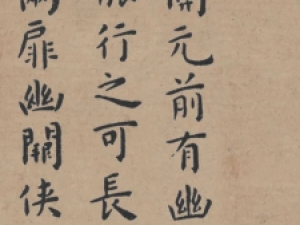 開元前有幽
行之可長
扉幽關俠